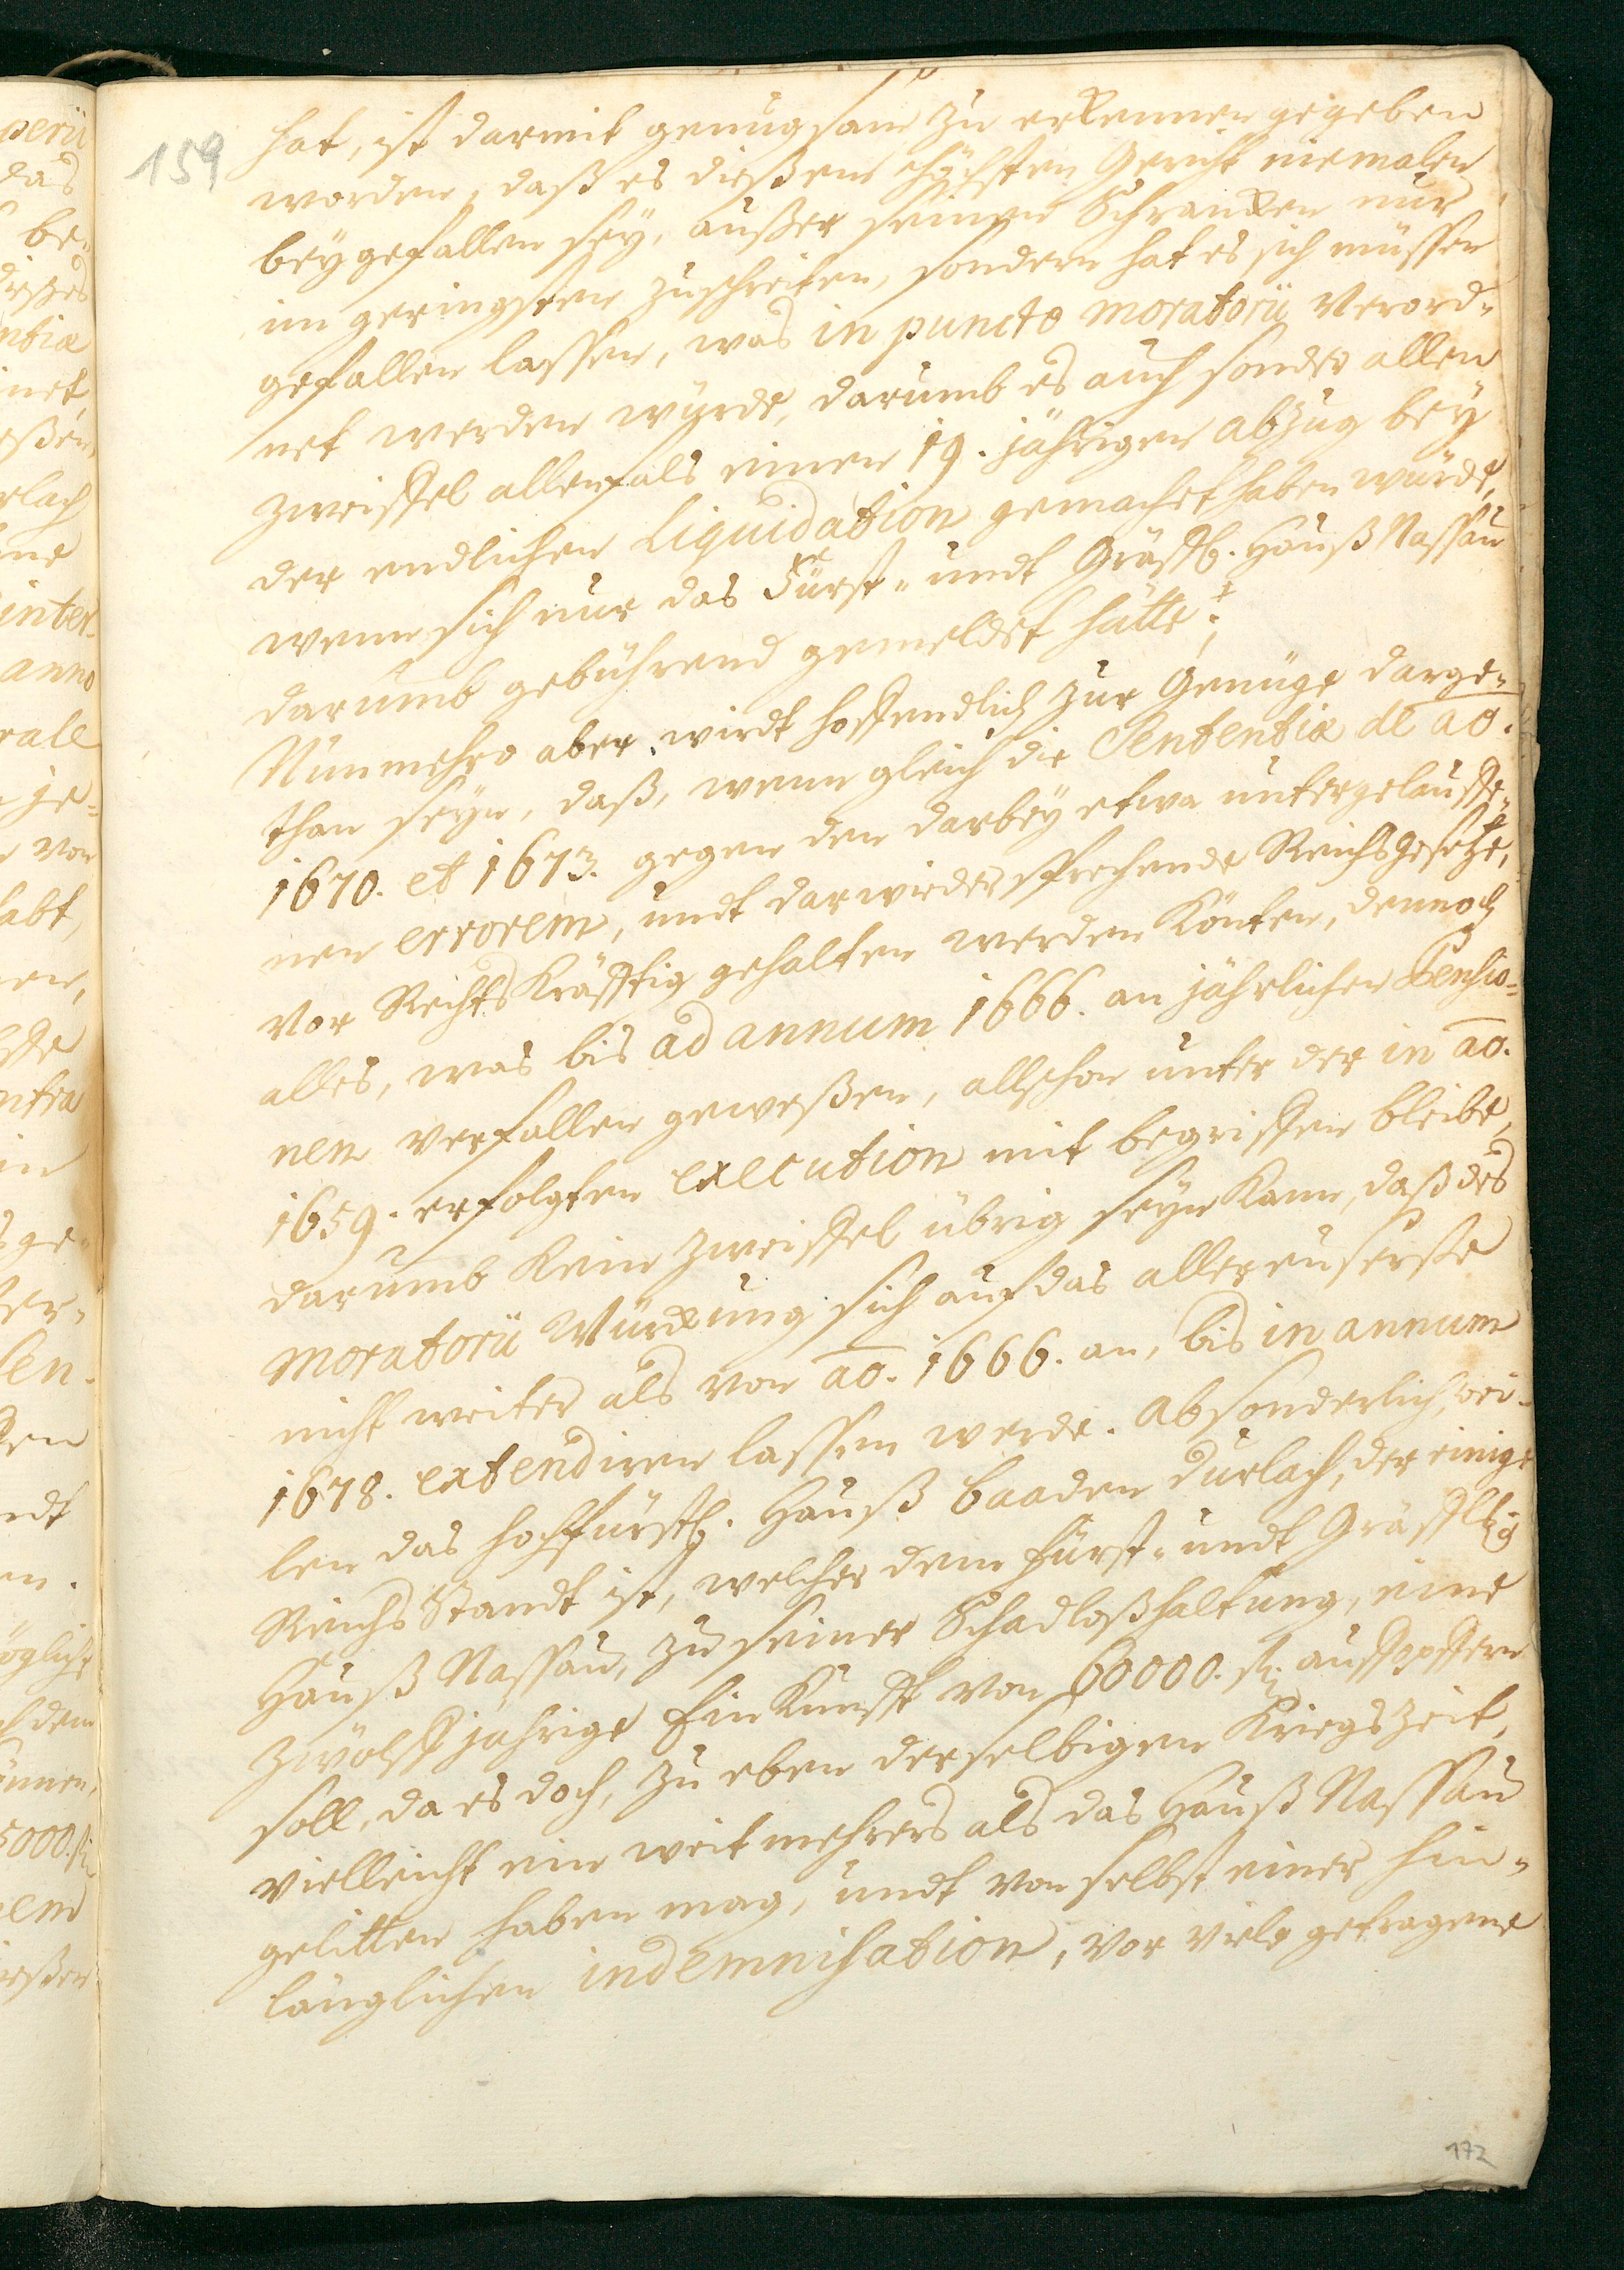 159
hat, ist darmit genugsam zu erkennen gegeben
worden, daß es dießem höchsten Gericht niemalen
beygefallen sey, außer seinen Schrancken nur
im geringsten zuschreiten, sondern hat es sich müssen
gefallen lassen, was in puncto moratorii Verord-
net werden würde, darumb es auch sonder allen
Zweiffel allenfals einen 19. jährigen abzug bey
der endlichen Liquidation gemachet haben würde,
wenn sich nur das Fürst- undt Gräffl. Hauß Nassau
darumb gebührend gemeldet hätte:
Nunmehro aber wirdt hoffendlich zur Genüge darge-
than seyn, daß, wenn gleich die Sententiæ de ao.
1670. et 1673. gegen den darbey etwa untergelauffe-
nen errorem, undt darwieder sprechende Reichsgesetze,
vor Rechts Kräfftig gehalten werden Könten, dennoch
alles, was bis ad annum 1666. an jährlichen Pensio-
nen verfallen geweßen, allschon unter der in ao.
1659. erfolgten execution mit begriffen bleibe,
darumb Kein Zweiffel übrig seyn Kann, daß des
moratorii Würckung sich auf das allereuserste
nicht weiter als von ao. 1666. an, bis in annum
1678. extendiren lassen werde. Absonderlich, wei-
len das hochfürstl. Hauß Baaden Durlach, der einige
Reichs Standt ist, welcher dem Fürst- undt Gräffl.
Hauß Nassau, zu seiner Schadloßhaltung, eine
Zwölff jährige Einkunfft von 60000. fl. auffopffern
soll, da es doch, zu eben derselbigen Kriegszeit,
vielleicht ein weit mehrers als das Hauß Nassau
gelitten haben mag, undt von selbst einer hin-
länglichen indemnisation, vor viele getragene
172